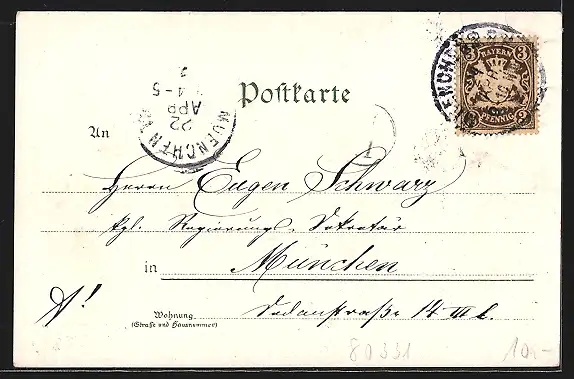 Postkarte
3 BAYERN 3
PFENNIG
MUENCHEN
22
APR
4-5
An
Herrn Eugen Schwarz
kgl. Regierungs-Sekretär
in München
Wohnung
(Straße und Hausnummer)
Sedanstraße 14 III l.
80331
10.-